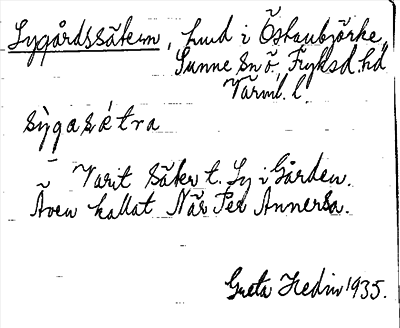 Lygårdssätern, hmd i Östanbjörke,
Sunne sn ö, Fryksd. hd
Värml. l.
sỳgasétra
– Varit säter t. Ly i Gården.
Även kallat När Per Annersa.
Greta Hedin 1935.